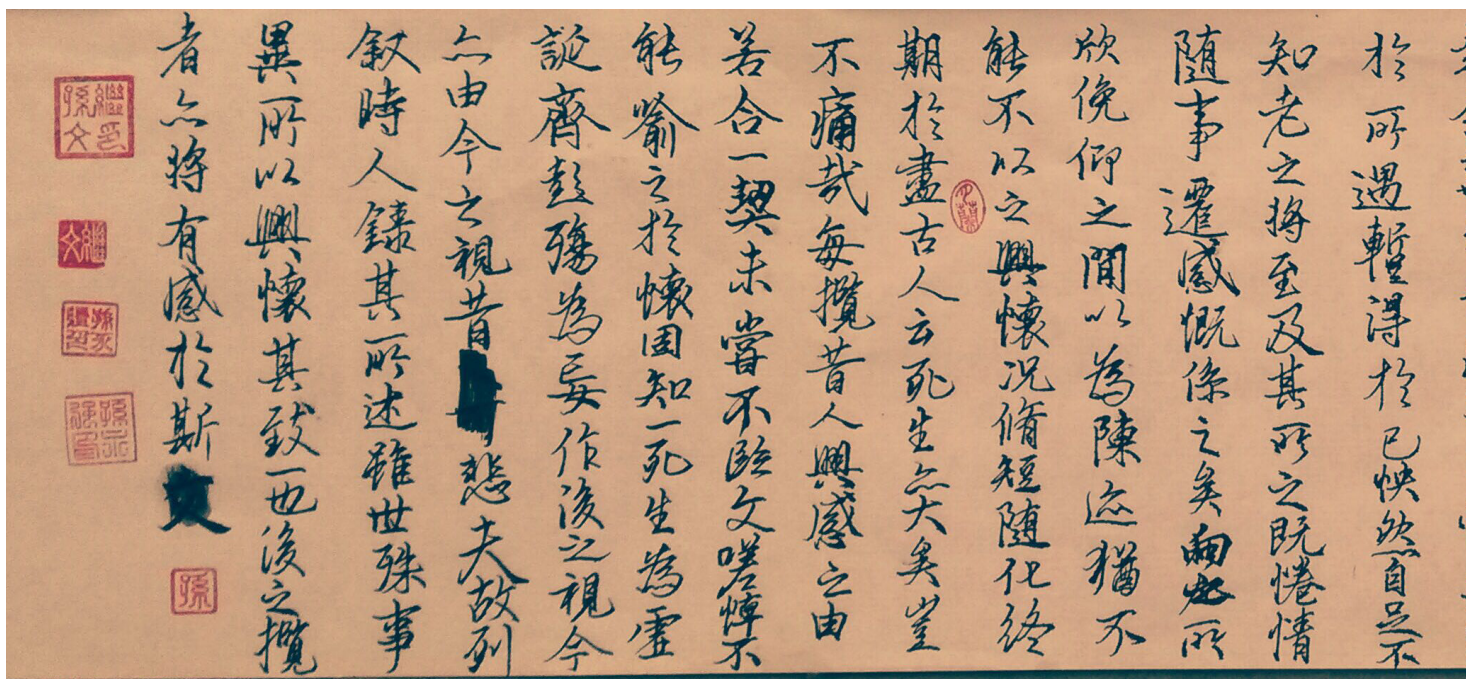 於所遇暫得於己怏然自足不
知老之將至及其所之既惓情
隨事遷感慨係之矣向之所
欣俛仰之閒以為陳迹猶不
能不以之興懷況脩短隨化終
期於盡古人云死生亦大矣豈
不痛哉每攬昔人興感之由
若合一契未嘗不臨文嗟悼不
能喻之於懷固知一死生為虛
誕齊彭殤為妄作後之視今
亦由今之視昔悲夫故列
叙時人錄其所述雖世殊事
異所以興懷其致一也後之攬
者亦將有感於斯文
孫